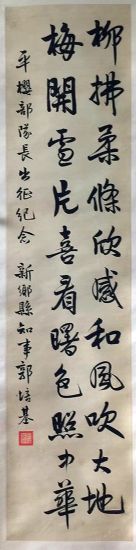 柳拂柔條欣感和風吹大地
梅開雪片喜看曙色照中華
平櫻部隊長出征紀念
新鄉縣知事郭培基